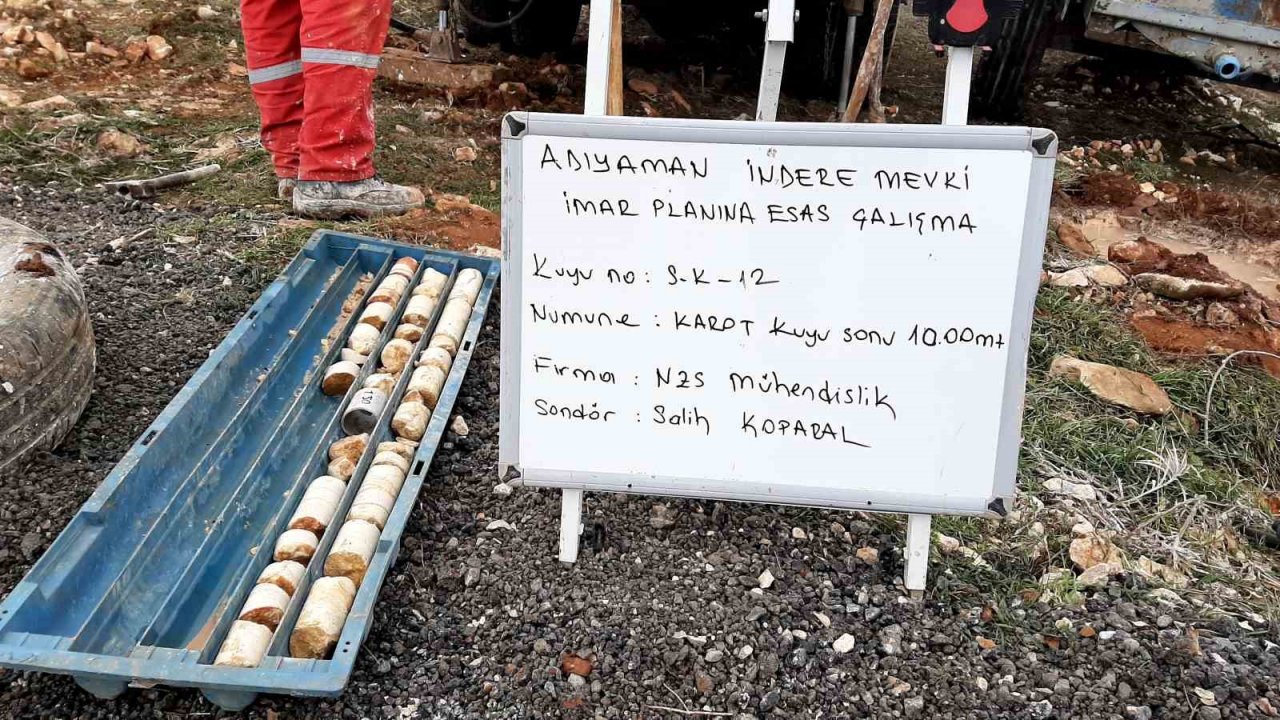 ADIYAMAN İNDERE MEVKİ
İMAR PLANINA ESAS ÇALIŞMA
Kuyu no : S-K-12
Numune : KAROT Kuyu sonu 10.00mt
Firma : NZS Mühendislik
Sondör : Salih KOPARAL